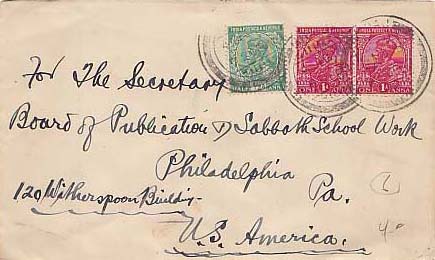 INDIA POSTAGE & REVENUE
INDIA POSTAGE & REVENUE
INDIA POSTAGE & REVENUE
HALF ANNA
1A
ONE ANNA
1A
ONE ANNA
For The Secretary
Board of Publication & Sabbath School Work
Philadelphia
120 Witherspoon Buildig. Pa.
U.S. America.